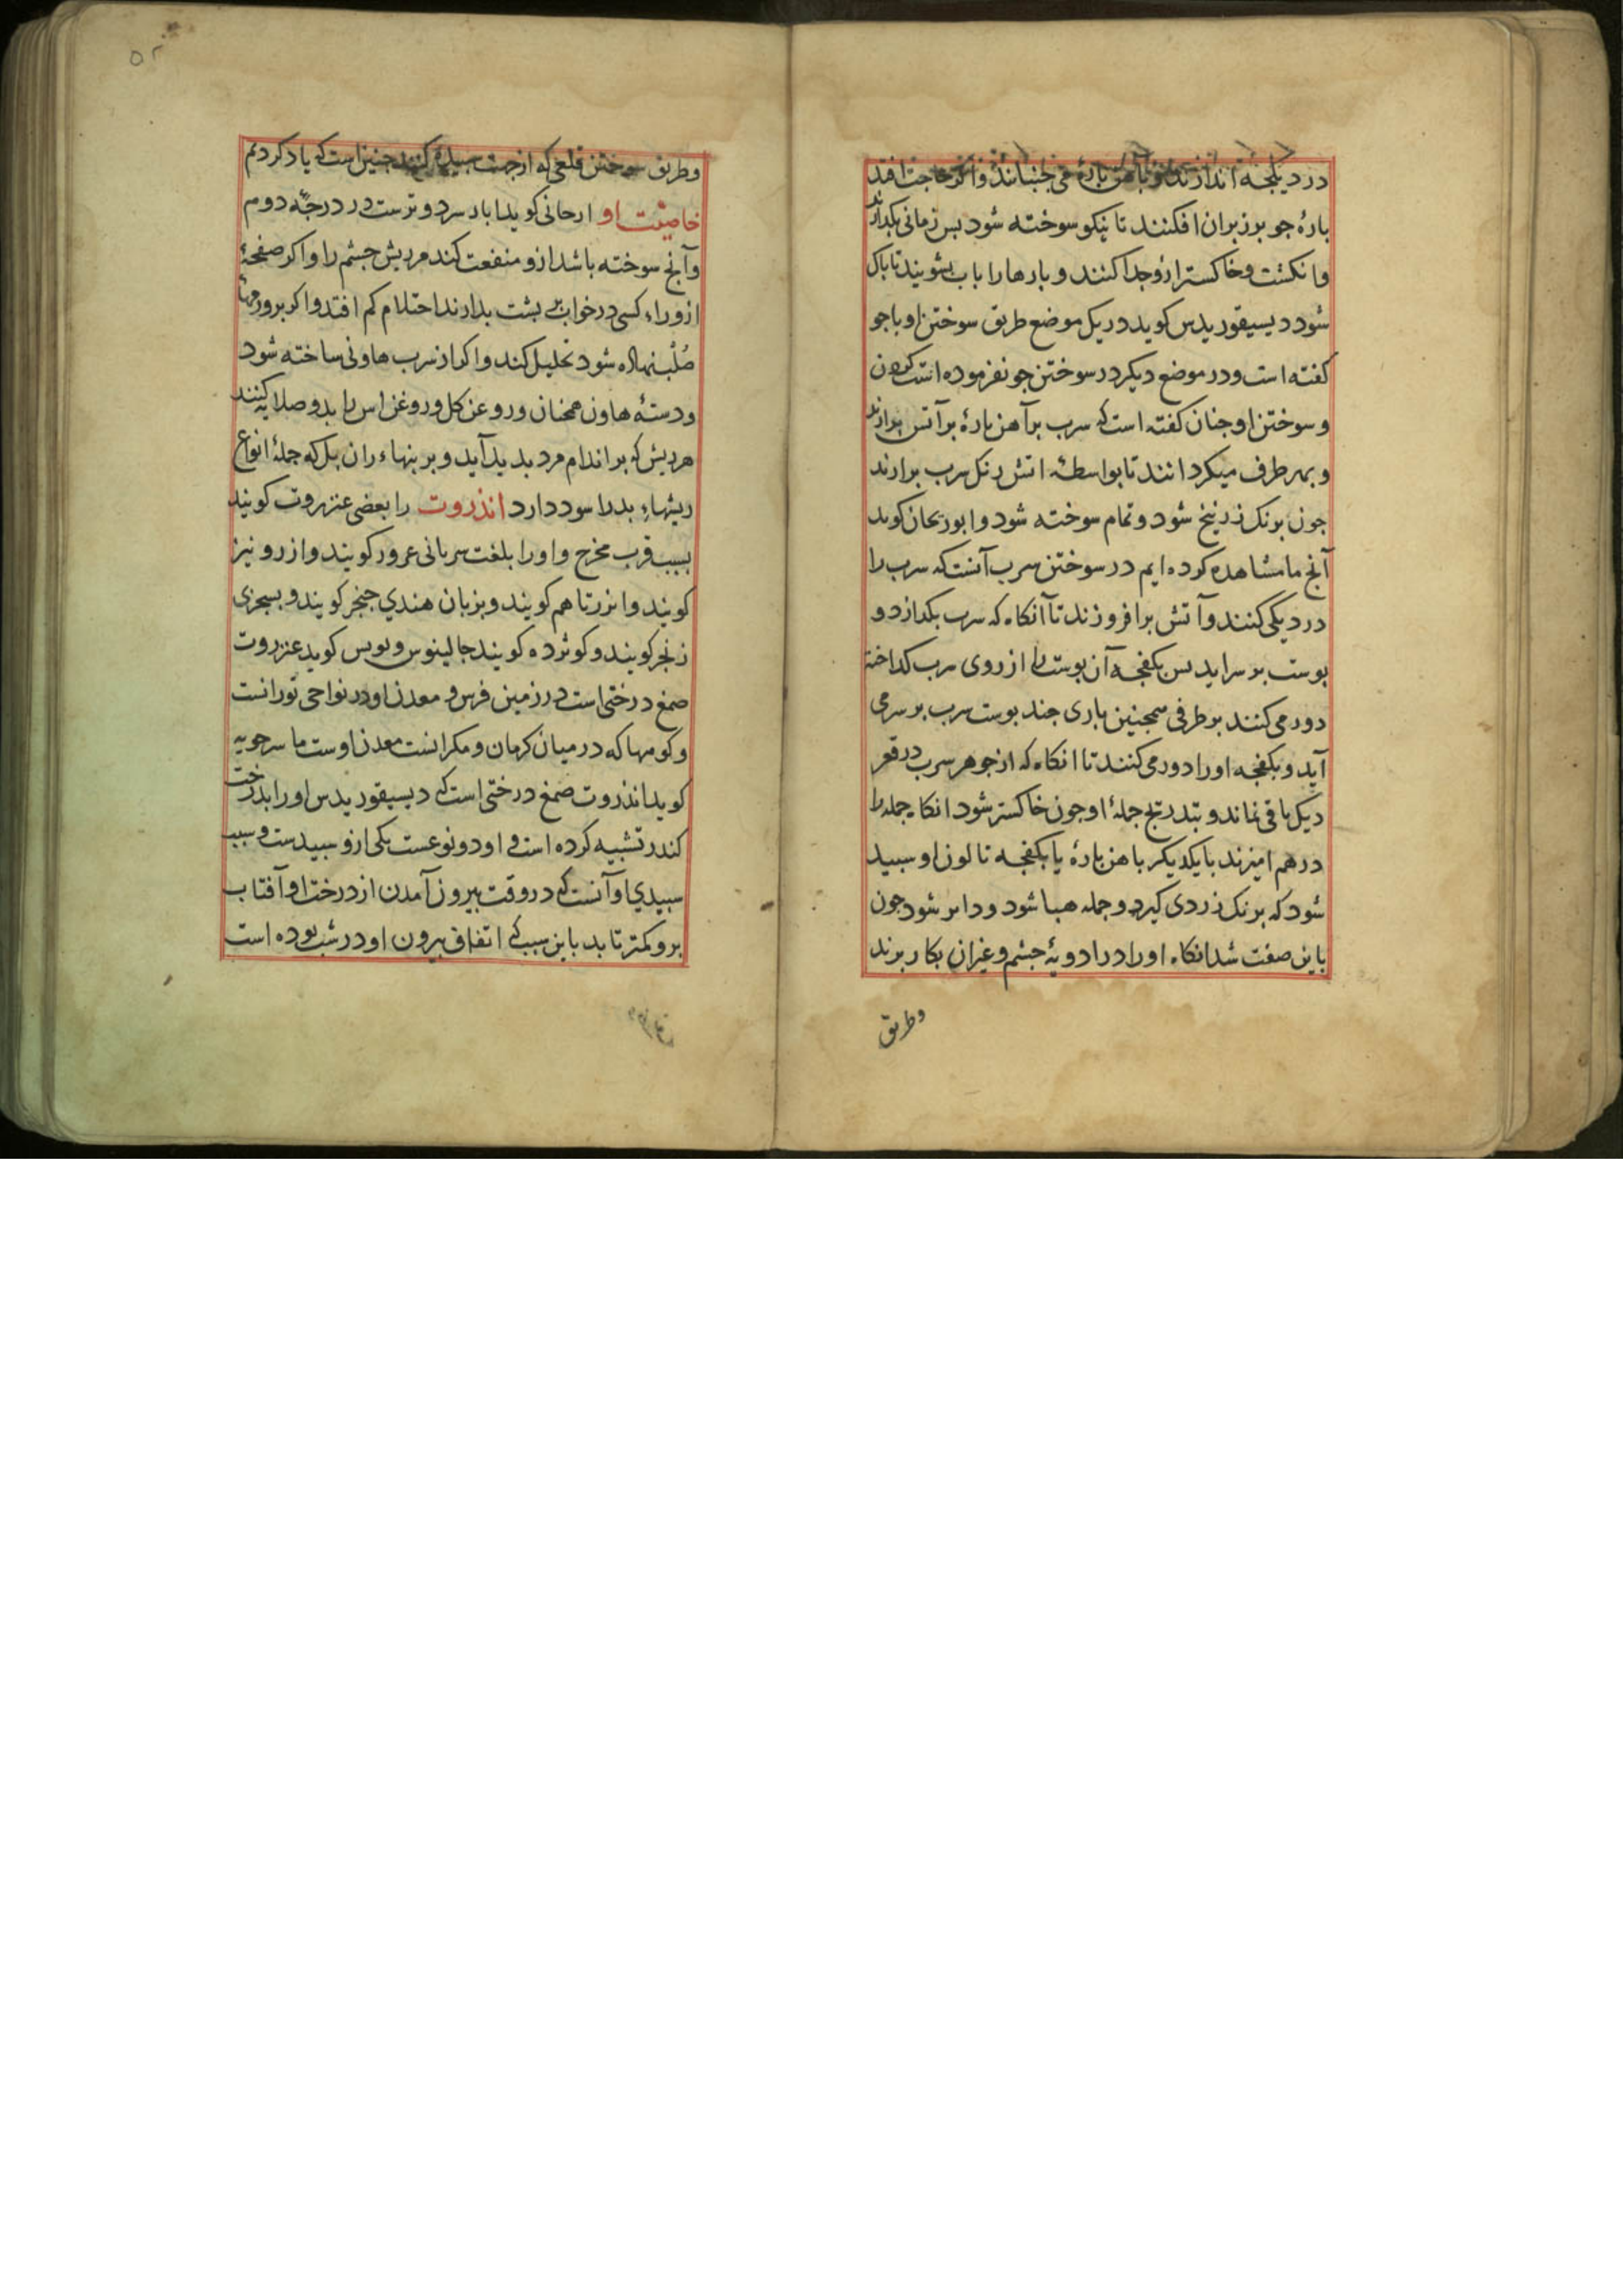 در دیکجه اندازند و باهن بارهٔ می جنبانند و اکر حاجت افتد
بارهٔ جو بر زبران افکنند تا نیکو سوخته شود بس زمانی بکدارند
وانکشت و خاکستر ازو جدا کنند و بارها را باب بشویند تا باک
شود دیسیقوریدس کوید در یک موضع طریق سوختن او با جو
کفته است و در موضع دیکر در سوختن جو نفرموده است کردن
و سوختن او جنان کفته است که سرب بر آهن بارهٔ بر آتش بدارند
و بهر طرف میکردانند تا بواسطهٔ اتش رنک سرب برارند
جون برنک زرنیخ شود و تمام سوخته شود و ابوریحان کوید
آنج ما مشاهده کرده ایم در سوختن سرب آنست که سرب را
در دیکی کنند و آتش برافروزند تا آنکاه که سرب بکدازد و
بوست بر سر اید بس بکفجه آن بوست را از روی سرب کداخته
دور می کنند بر طرفی همجنین باری جند بوست سرب بر سر می
آید و بکفجه اورا دور می کنند تا انکاه که از جوهر سرب در قعر
دیک باقی نماند و بتدریج جملهٔ او جون خاکستر شود انکاه جمله را
در هم امیزند با یکدیکر باهن بارهٔ یا بکفجه تا لون او سبید
شود که برنک زردی کیرد و جمله هبا شود و جون
باین صفت شد انکاه اورا در ادویهٔ جشم و غیران بکار برند
وطریق
وطریق سوختن قلعی که از جهت سبیده کنند جنین است که یاد کردیم
خاصیت او ارجانی کوید اباد سرد و ترست در درجه دوم
و آنج سوخته باشد ازو منفعت کند مر ریش جشم را و اکر صفحهٔ
ازو راء کسی در خواب بر بشت بدارند احتلام کم افتد و اکر بر ورمهاء
صلب نهاده شود تحلیل کند و اکر از سرب هاونی ساخته شود
و دستهٔ هاون همجنان و روغن کل و روغن اس را بدو صلایه کنند
هر ریش که بر اندام مرد بدید آید و بر بنهاء ران بل که جملهٔ انواع
ریشهاء بد را سود دارد انذروت را بعضی عنزروت کویند
بسبب قرب مخرج و اورا بلغت سریانی عرور کویند و ازرو نیز
کویند و انزرتا هم کویند و بزبان هندی جنجر کویند و بسجزی
زنجر کویند و کوژده کویند جالینوس و بولس کوید عنزروت
صمغ درختی است در زمین فرس و معدن او در نواحی تورانست
و کوهها که در میان کرمان و مکرانست معدن اوست ماسرجویه
کوید انذروت صمغ درختی است که دیسیقوریدس اورا بدرخت
کندر تشبیه کرده است و او دو نوعست یکی ازو سبیدست و سبب
سبیدی او آنست که در وقت بیرون آمدن از درخت او آفتاب
برو کمتر تابد باین سبب که اتفاق بیرون او در شب بوده است